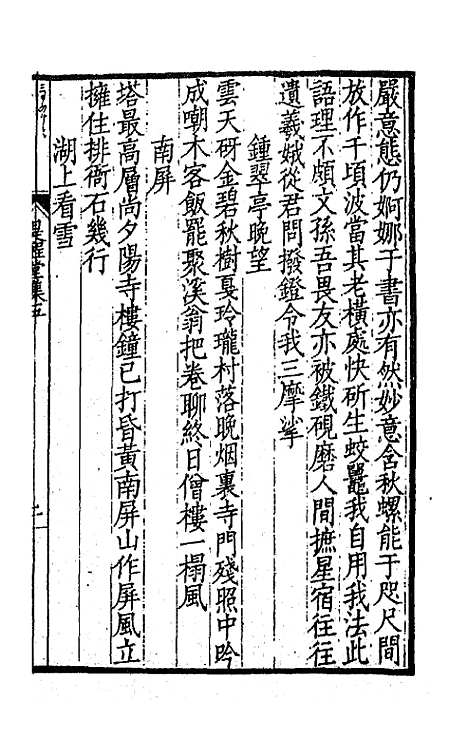 嚴意態仍婀娜于書亦有然妙意含秋螺能于咫尺間
放作千頃波當其老橫處快斫生蛟鼉我自用我法此
語理不頗文孫吾畏友亦被鐵硯磨人間摭星宿往往
遺羲娥從君問撥鐙令我三摩挲
鍾翠亭晚望
雲天硏金碧秋樹戛玲瓏村落晚烟裏寺門殘照中吟
成嘲木客飯罷聚溪翁把卷聊終日僧樓一榻風
南屏
塔最高層尚夕陽寺樓鐘已打昏黃南屏山作屏風立
擁住排衙石幾行
湖上看雪
堂集五